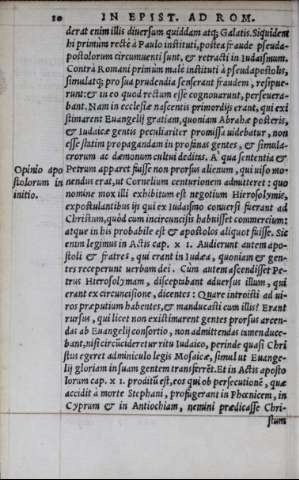 20 IN EPIST. AD ROM.
derat enim illis diuersum quiddam atq; Galatis. Siquident
hi primùm recte à Paulo instituti, postea fraude pseuda-
postolorum circumuenti sunt, & retracti in Iudaismum.
Contrà Romani primùm male instituti à pseudapostolis,
simulatq; pro sua prudentia senserant fraudem, resipue-
runt: & in eo quod rectum esse cognouerant, perseuera-
bant. Nam in ecclesiæ nascentis primordijs erant, qui exi
stimarent Euangelij gratiam, quoniam Abrahæ posteris,
& Iudaicæ gentis peculiariter promissa uidebatur, non
esse statim propagandam in profanas gentes, & simula-
crorum ac dæmonum cultui deditas. A qua sententia &
Opinio apo
stolorum in
initio.
Petrum apparet fuisse non prorsus alienum, qui uiso mo-
nendus erat, ut Cornelium centurionem admitteret: quo
nomine mox illi exhibitum est negotium Hierosolymis,
expostulantibus ijs qui ex Iudaismo conuersi fuerant ad
Christum, quòd cum incircuncisis habuisset commercium:
atque in his probabile est & apostolos aliquot fuisse. Sic
enim legimus in Actis cap. x 1. Audierunt autem apo-
stoli & fratres, qui erant in Iudæa, quoniam & gen-
tes receperunt uerbum dei. Cùm autem ascendisset Pe-
trus Hierosolymam, disceptabant aduersus illum, qui
erant ex circuncisione, dicentes: Quare introisti ad ui-
ros præputium habentes, & manducasti cum illis? Erant
rursus, qui licet non existimarent gentes prorsus arcen-
das ab Euangelij consortio, non admittendas tamen duce-
bant, nisi circūciderētur ritu Iudaico, perinde quasi Chri
stus egeret adminiculo legis Mosaicæ, simul ut Euange-
lij gloriam in suam gentem transferrēt. Et in Actis aposto
lorum cap. x 1. proditū est, eos qui ob persecutionē, quæ
accidit à morte Stephani, profugerant in Phœnicem, in
Cyprum & in Antiochiam, nemini prædicasse Chri-
stum